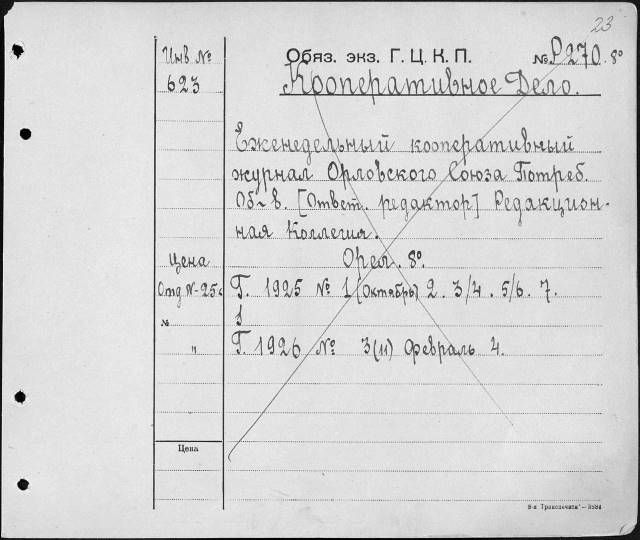 23
Инв №
Обяз. экз. Г. Ц. К. П. № Р270. 8º
623
Кооперативное Дело.
Еженедельный кооперативный
журнал Орловского Союза Потреб.
Об-в. [Ответ. редактор] Редакцион-
ная Коллегия.
Цена
Орел. 8º.
Отд № - 25 к
Г. 1925 № 1 (октябрь) 2. 3/4. 5/6. 7.
№
" Г. 1926 № 3(11) февраль 4.
Цена